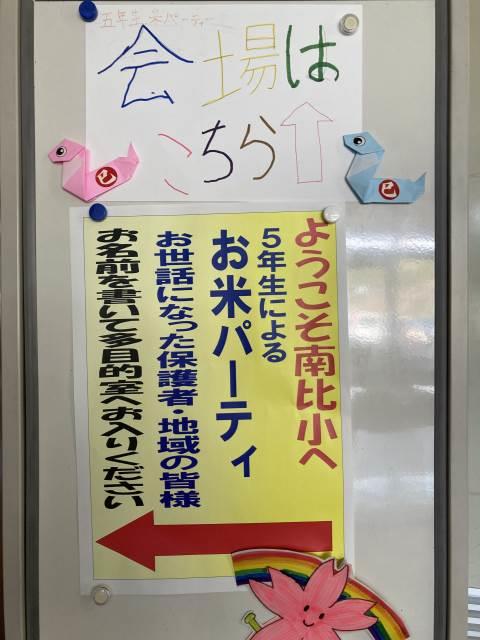 五年生 米パーティー
会場は
こちら
巳
巳
ようこそ南比小へ
5年生による
お米パーティ
お世話になった保護者・地域の皆様
お名前を書いて多目的室へお入りください